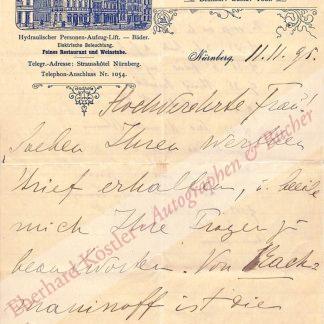 Hydraulischer Personen-Aufzug-Lift. — Bäder.
Elektrische Beleuchtung.
Feines Restaurant und Weinstube.
Telegr.-Adresse: Strausshôtel Nürnberg.
Telephon-Anschluss Nr. 1054.
Nürnberg, 11. 11. 95.
Hochverehrte Frau!
Soeben Ihren werthen
Brief erhalten, u. beeile
mich Ihre Fragen zu
beantworten. Von Rach-
maninoff ist die
Eberhard Köstler Autographen & Bücher